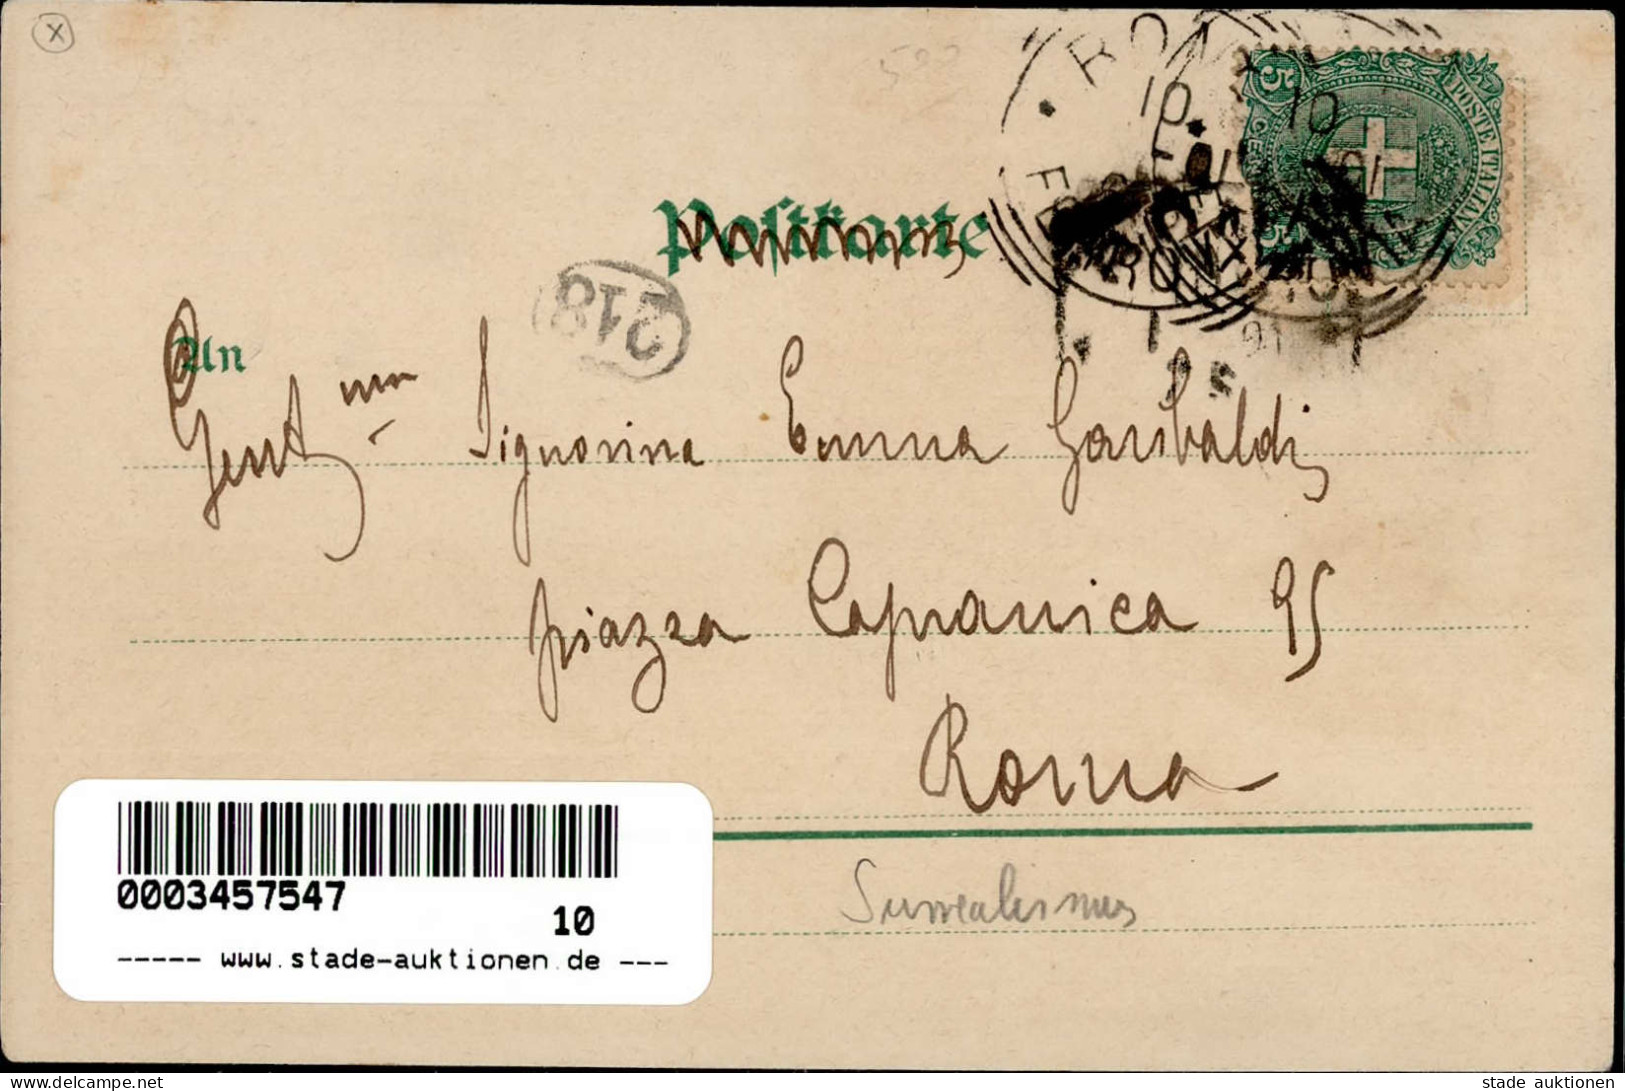 X
500
ROMA
10
5
POSTE ITALIANE
10
Postkarte
218
An
Gent.ma Signorina Emma Garibaldi
piazza Capranica 95
Roma
0003457547
10
----- www.stade-auktionen.de ---
Surrealismus
www.delcampe.net
stade auktionen